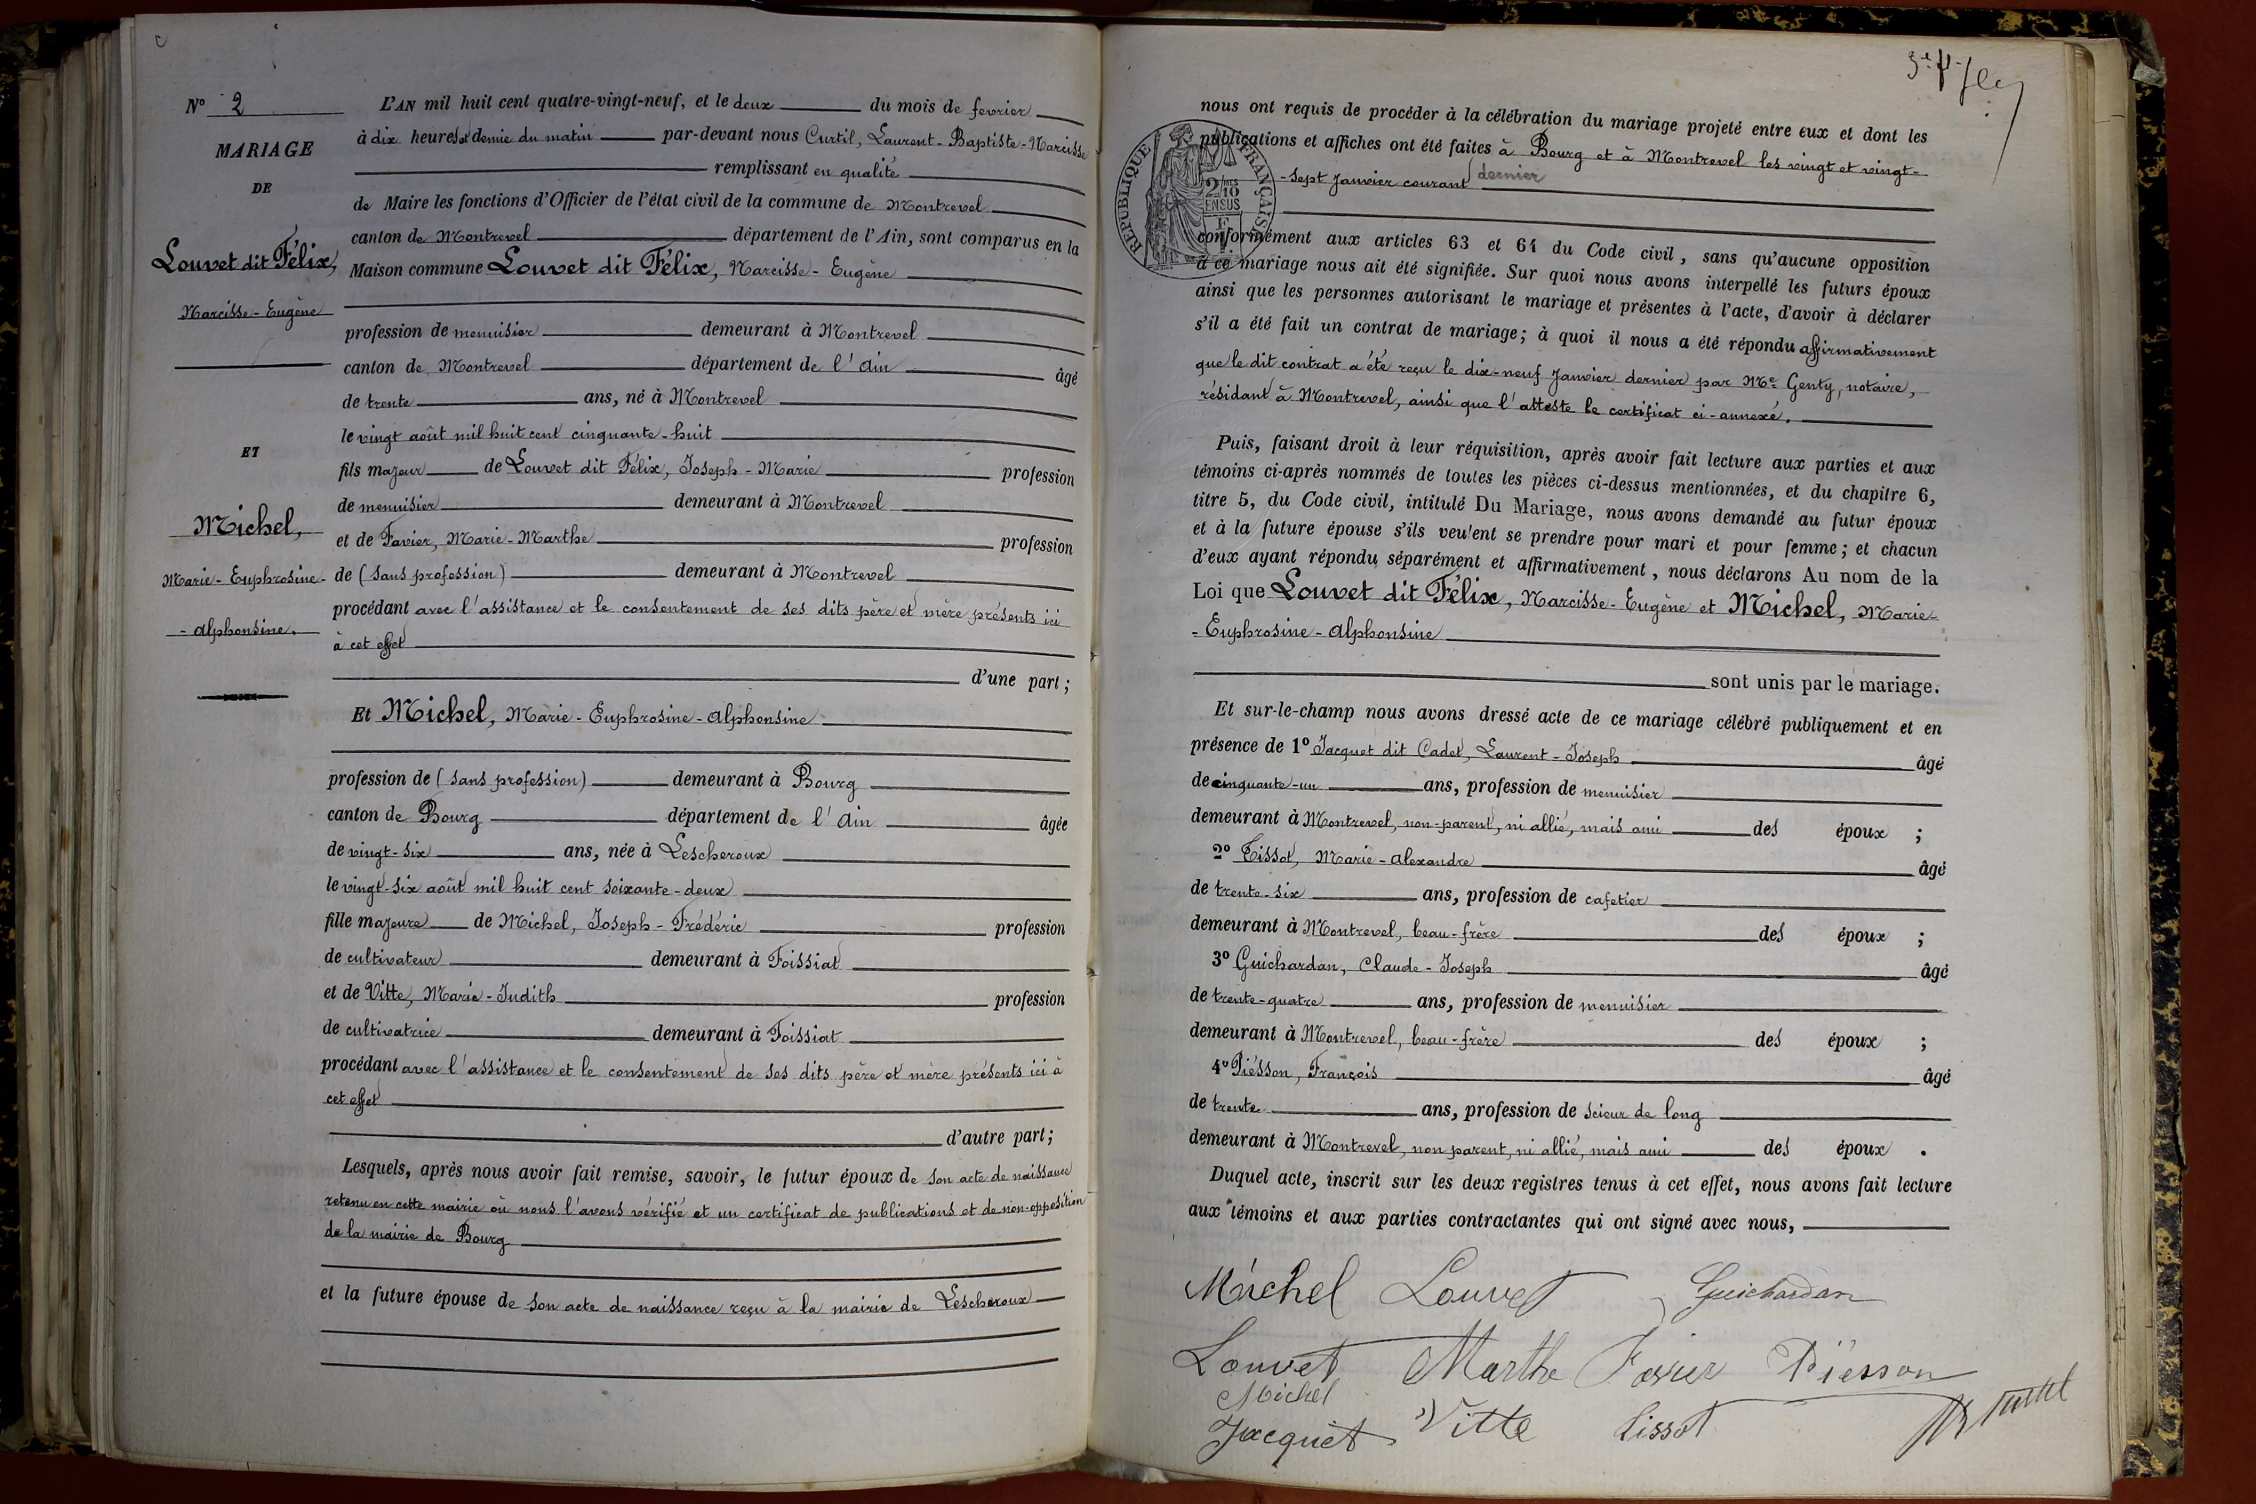 N° 2
MARIAGE
DE
Louvet dit Félix,
Narcisse-Eugène
ET
Michel,
Marie-Euphrosine-
-Alphonsine.
L'AN mil huit cent quatre-vingt-neuf, et le deux du mois de fevrier
à dix heures et demie du matin par-devant nous Curtil, Laurent-Baptiste-Narcisse
remplissant en qualité
de Maire les fonctions d'Officier de l'état civil de la commune de Montrevel
canton de Montrevel département de l'Ain, sont comparus en la
Maison commune Louvet dit Félix, Narcisse-Eugène
profession de menuisier demeurant à Montrevel
canton de Montrevel département de l'Ain âgé
de trente ans, né à Montrevel
le vingt août mil huit cent cinquante-huit
fils majeur de Louvet dit Félix, Joseph-Marie profession
de menuisier demeurant à Montrevel
et de Favier, Marie-Marthe profession
de (sans profession) demeurant à Montrevel
procédant avec l'assistance et le consentement de ses dits père et mère présents ici
à cet effet
d'une part;
Et Michel, Marie-Euphrosine-Alphonsine
profession de (sans profession) demeurant à Bourg
canton de Bourg département de l'Ain âgée
de vingt-six ans, née à Lescheroux
le vingt-six août mil huit cent soixante-deux
fille majeure de Michel, Joseph-Frédéric profession
de cultivateur demeurant à Foissiat
et de Vitte, Marie-Judith profession
de cultivatrice demeurant à Foissiat
procédant avec l'assistance et le consentement de ses dits père et mère présents ici à
cet effet
d'autre part;
Lesquels, après nous avoir fait remise, savoir, le futur époux de son acte de naissance
retenu en cette mairie où nous l'avons vérifié et un certificat de publications et de non-opposition
de la mairie de Bourg
et la future épouse de son acte de naissance reçu à la mairie de Lescheroux
nous ont requis de procéder à la célébration du mariage projeté entre eux et dont les
publications et affiches ont été faites à Bourg et à Montrevel les vingt et vingt-
-sept Janvier courant dernier
RÉPUBLIQUE FRANÇAISE
2/10
EN SUS
conformément aux articles 63 et 64 du Code civil, sans qu'aucune opposition
à ce mariage nous ait été signifiée. Sur quoi nous avons interpellé les futurs époux
ainsi que les personnes autorisant le mariage et présentes à l'acte, d'avoir à déclarer
s'il a été fait un contrat de mariage; à quoi il nous a été répondu affirmativement
que le dit contrat a été reçu le dix-neuf Janvier dernier par Me Genty, notaire,
résidant à Montrevel, ainsi que l'atteste le certificat ci-annexé.
Puis, faisant droit à leur réquisition, après avoir fait lecture aux parties et aux
témoins ci-après nommés de toutes les pièces ci-dessus mentionnées, et du chapitre 6,
titre 5, du Code civil, intitulé Du Mariage, nous avons demandé au futur époux
et à la future épouse s'ils veulent se prendre pour mari et pour femme; et chacun
d'eux ayant répondu séparément et affirmativement, nous déclarons Au nom de la
Loi que Louvet dit Félix, Narcisse-Eugène et Michel, Marie-
-Euphrosine-Alphonsine
sont unis par le mariage.
Et sur-le-champ nous avons dressé acte de ce mariage célébré publiquement et en
présence de 1° Jacquet dit Cadet, Laurent-Joseph âgé
de cinquante-un ans, profession de menuisier
demeurant à Montrevel, non-parent, ni allié, mais ami des époux ;
2° Tissot, Marie-Alexandre âgé
de trente-six ans, profession de cafetier
demeurant à Montrevel, beau-frère des époux ;
3° Guichardan, Claude-Joseph âgé
de trente-quatre ans, profession de menuisier
demeurant à Montrevel, beau-frère des époux ;
4° Piésson, François âgé
de trente ans, profession de scieur de long
demeurant à Montrevel, non parent, ni allié, mais ami des époux .
Duquel acte, inscrit sur les deux registres tenus à cet effet, nous avons fait lecture
aux témoins et aux parties contractantes qui ont signé avec nous,
Michel Louvet Guichardan
Louvet Marthe Favier Piésson
Michel
Jacquet Vitte Tissot